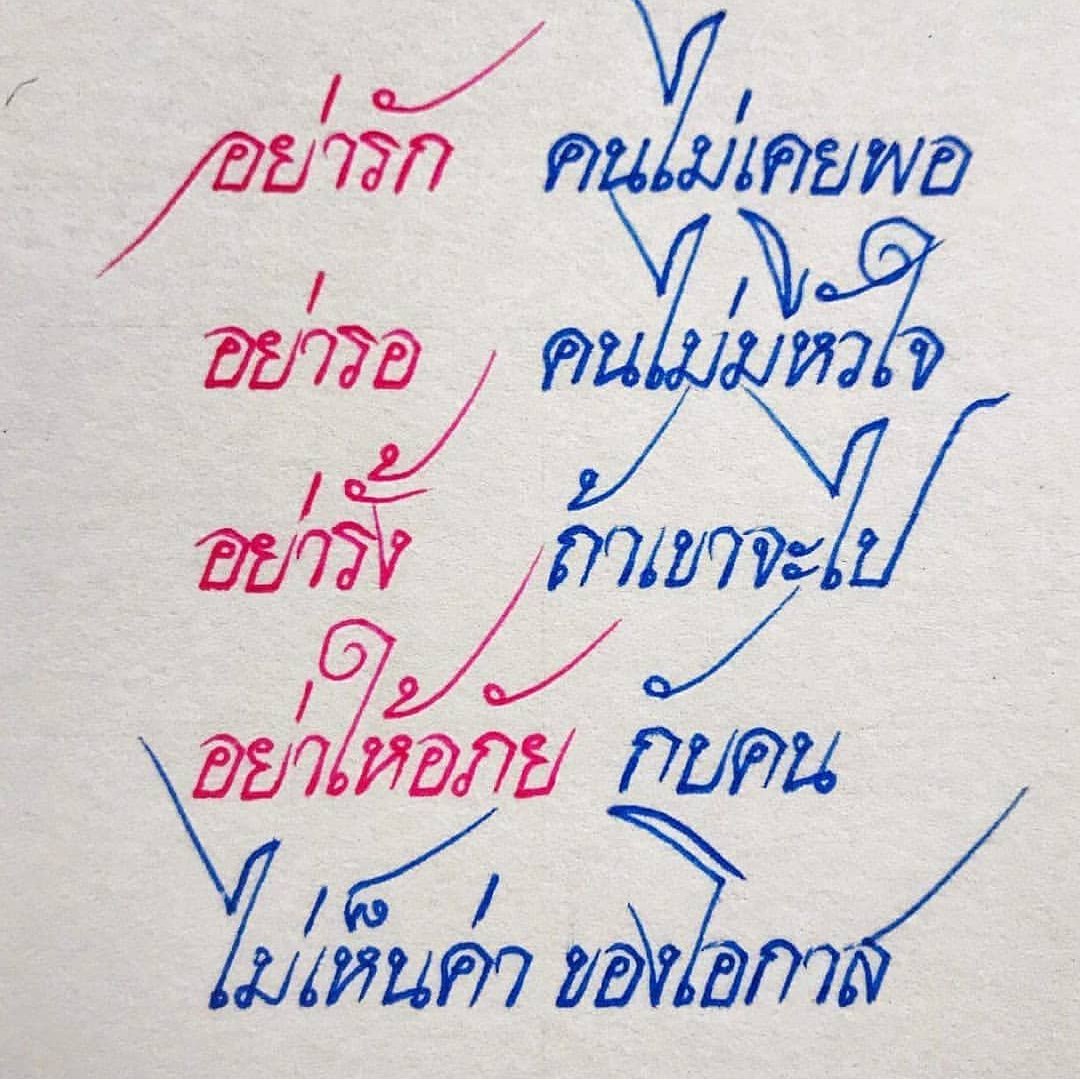 อย่ารัก คนไม่เคยพอ
อย่ารอ คนไม่มีหัวใจ
อย่ารั้ง ถ้าเขาจะไป
อย่าให้อภัย กับคน
ไม่เห็นค่า ของโอกาส